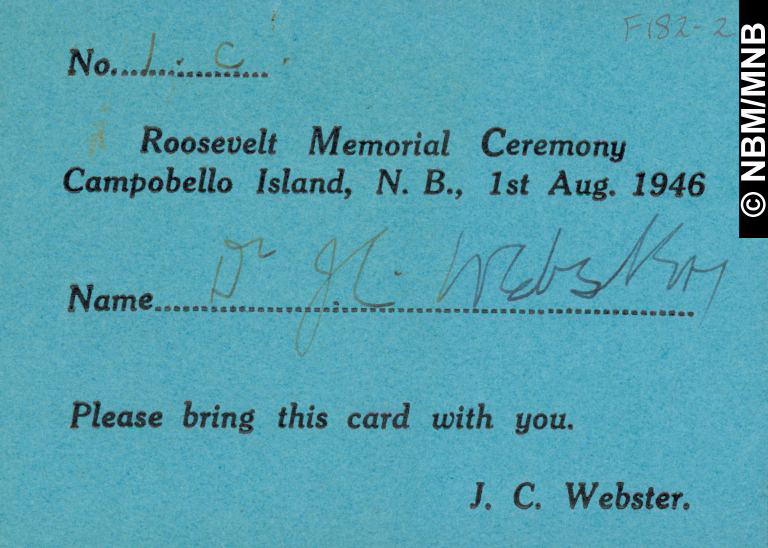 F182-2
No. 1. C.
Roosevelt Memorial Ceremony
Campobello Island, N. B., 1st Aug. 1946
Name Dr J.C. Webster
Please bring this card with you.
J. C. Webster.
© NBM/MNB